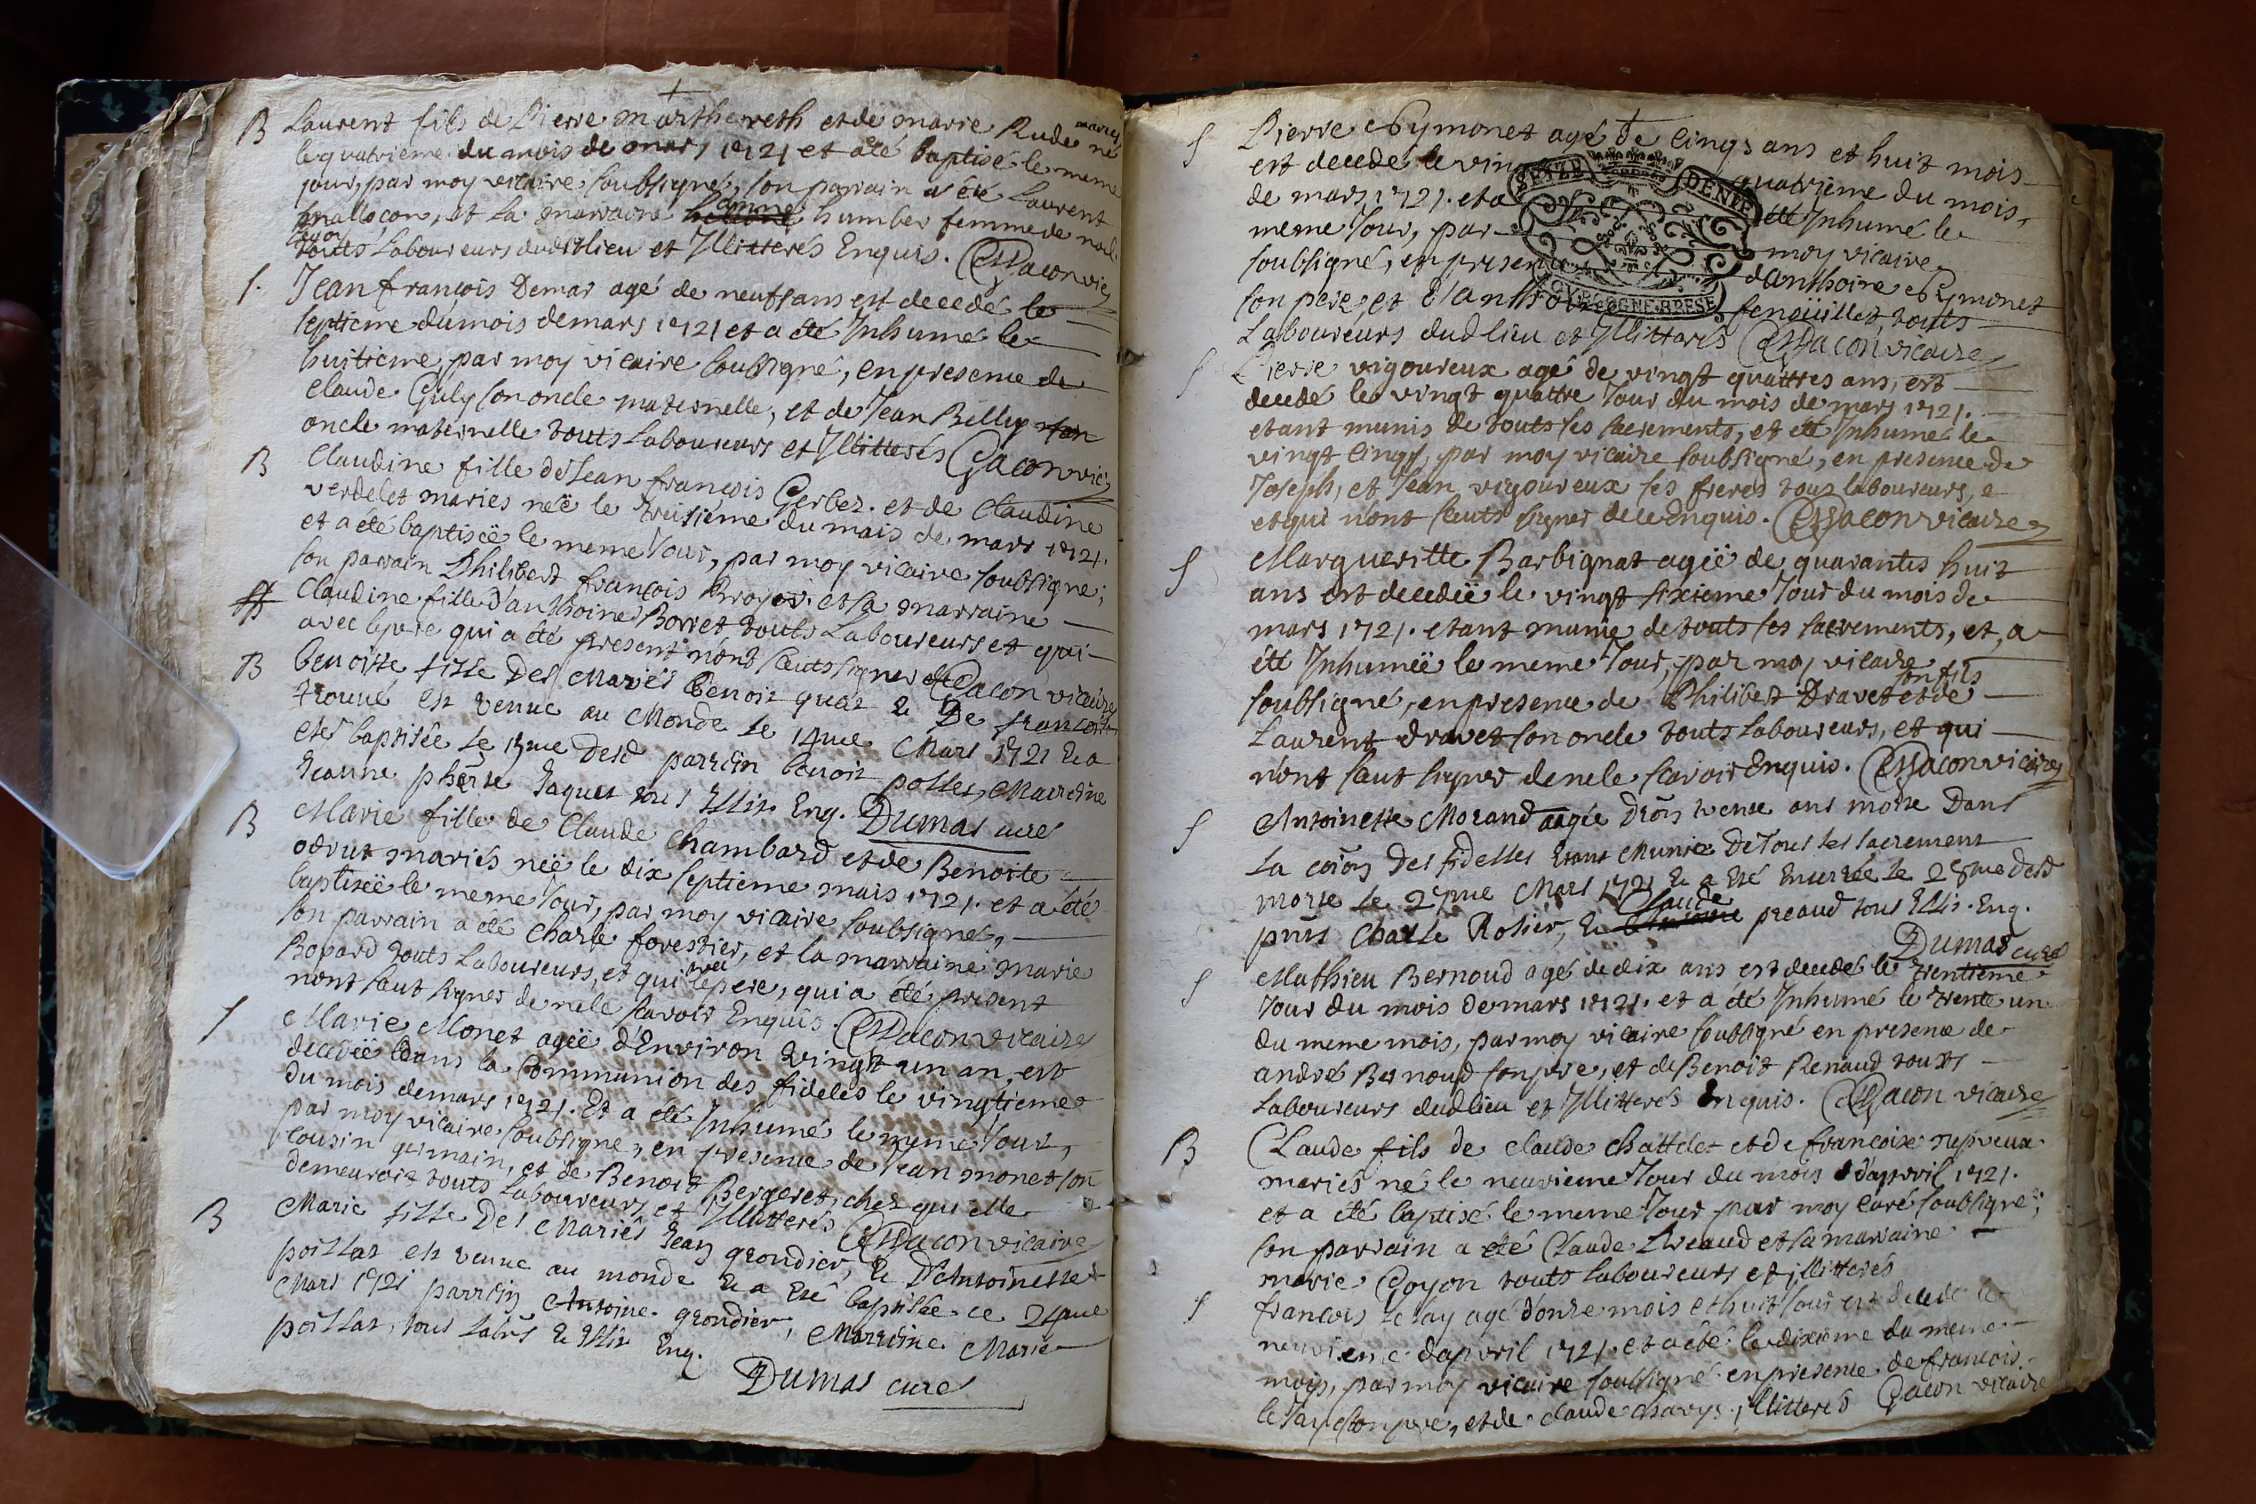 B Laurent fils de Pierre Marthereth et de marie Rude mariés né
le quatrieme du mois de mars 1721 et a été baptisé le meme
jour, par moy vicaire soubsigné, son parrain a été Laurent
et la marraine anne humber femme de
touts Laboureurs dudit lieu et Illitterés Enquis. Gacon vic
S. Jean françois Demar agé de neufs ans est decedé le
septieme du mois de mars 1721 et a été Inhumé le
huitieme, par moy vicaire soubsigné, en presence de
claude Guly son oncle maternelle, et de Jean Billy son
oncle maternelle touts Laboureurs et Illitterés Gacon vic
B Claudine fille de Jean françois Gerbez. et de Claudine
verdelet mariés néë le treisiéme du mois de mars 1721.
et a été baptiséë le meme Jour, par moy vicaire soubsigné,
son parrain Philibert françois Broyer. et sa marraine
Claudine fille d'anthoine Borret touts Laboureurs et qui
avec le pere qui a été present n'ont sceuts signer Gacon vicaire
B benoitte fille Des Mariés benoit quat & De francoise
trouvé est venue au Monde le 14me Mars 1721 & a
eté baptisée le 15me Desd parrein benoit pollet, Marreine
Jeanne Jaquet tous Illit. Enq. Dumas curé
B Marie fille de Claude Chambard et de Benoite
odrut mariés néë le dix septieme mars 1721. et a été
baptiséë le meme Jour, par moy vicaire soubsigné,
son parrain a été Charle forestier, et la marraine marie
Bopard touts Laboureurs, et qui avec le pere, qui a été present
nont saut signer de nele scavoir Enquis. Gacon vicaire
S Marie Monet agéë d'Environ vingt un an, est
decedéë dans la Communion des fideles le vingtieme
du mois de mars 1721. Et a été Inhumé le meme Jour,
par moy vicaire soubsigné, en presence de Jean monet son
cousin germain, et de Benoit Bergeret, chez qui elle
demeuroit touts Laboureurs et Illitterés Gacon vicaire
B Marie fille Des Mariés Jean grondier, & D'Antoinette
poillat est venue au monde & a eté baptisée ce 24me
Mars 1721 parrein Antoine grondier, Marreine Marie
poillat, tous labrs & Illit Enq.
Dumas curé
S Pierre Symonet agé de cinqs ans et huit mois
est decede le vingt quatrieme du mois
de mars 1721. et a été Inhumé le
meme Jour, par moy vicaire
soubsigné, en presence d'anthoine Symonet
son pere, et d'anthoine fenoüillet, touts
Laboureurs dud lieu et Illitterés Gacon vicaire
SEIZE DENIE
BOURGOGNE BRESE
S Pierre vigoureux agé de vingt quattres ans, est
decedé le vingt quattre Jour du mois de mars 1721.
etant munis de touts ses sacrements, et été Inhumé le
vingt cinqs, par moy vicaire soubsigné, en presence de
Joseph, et Jean vigoureux ses freres tous laboureurs,
et qui nont sceuts signer de ce Enquis. Gacon vicaire
S Margueritte Barbignat agéë de quarantes huit
ans est decedéë le vingt sixieme Jour du mois de
mars 1721. etant munie de touts ses sacrements, et a
été Inhuméë le meme Jour, par moy vicaire
soubsigné, en presence de Philibert Dravet son fils et de
Laurent dravet son oncle touts Laboureurs, et qui
n'ont saut signer de nele scavoir Enquis. Gacon vicaire
S Antoinette Morand aagée trente ans morte Dans
la Des fidelles Etant Munie De tous les sacrement
morte le 27me Mars 1721 & a eté Enterrée le 28me Desd
Charle Rosier, & Claude preaud tous Illit. Enq.
Dumas curé
S Mathieu Bernoud agé de dix ans est decedé le trentieme
Jour du mois de mars 1721. et a été Inhumé le trente un
du meme mois, par moy vicaire soubsigné en presence de
andré Bernoud son pere, et de Benoit Renaud touts
Laboureurs dud lieu et Illitterés Enquis. Gacon vicaire
B Claude fils de claude chattelet et de francoise nepveux
mariés né le neuvieme Jour du mois d'apvril 1721.
et a été baptisé le meme Jour par moy curé soubsigné;
son parrain a été Claude Areaud et sa marraine
marie Goyon touts laboureurs et illitterés
S francois le Jay agé d'onze mois et huit Jour est decedé le
neuvieme dapvril 1721. et a été le dixieme du meme
mois, par moy vicaire soubsigné en presence de francois
le Jay son pere, et de claude charys illitterés Gacon vicaire